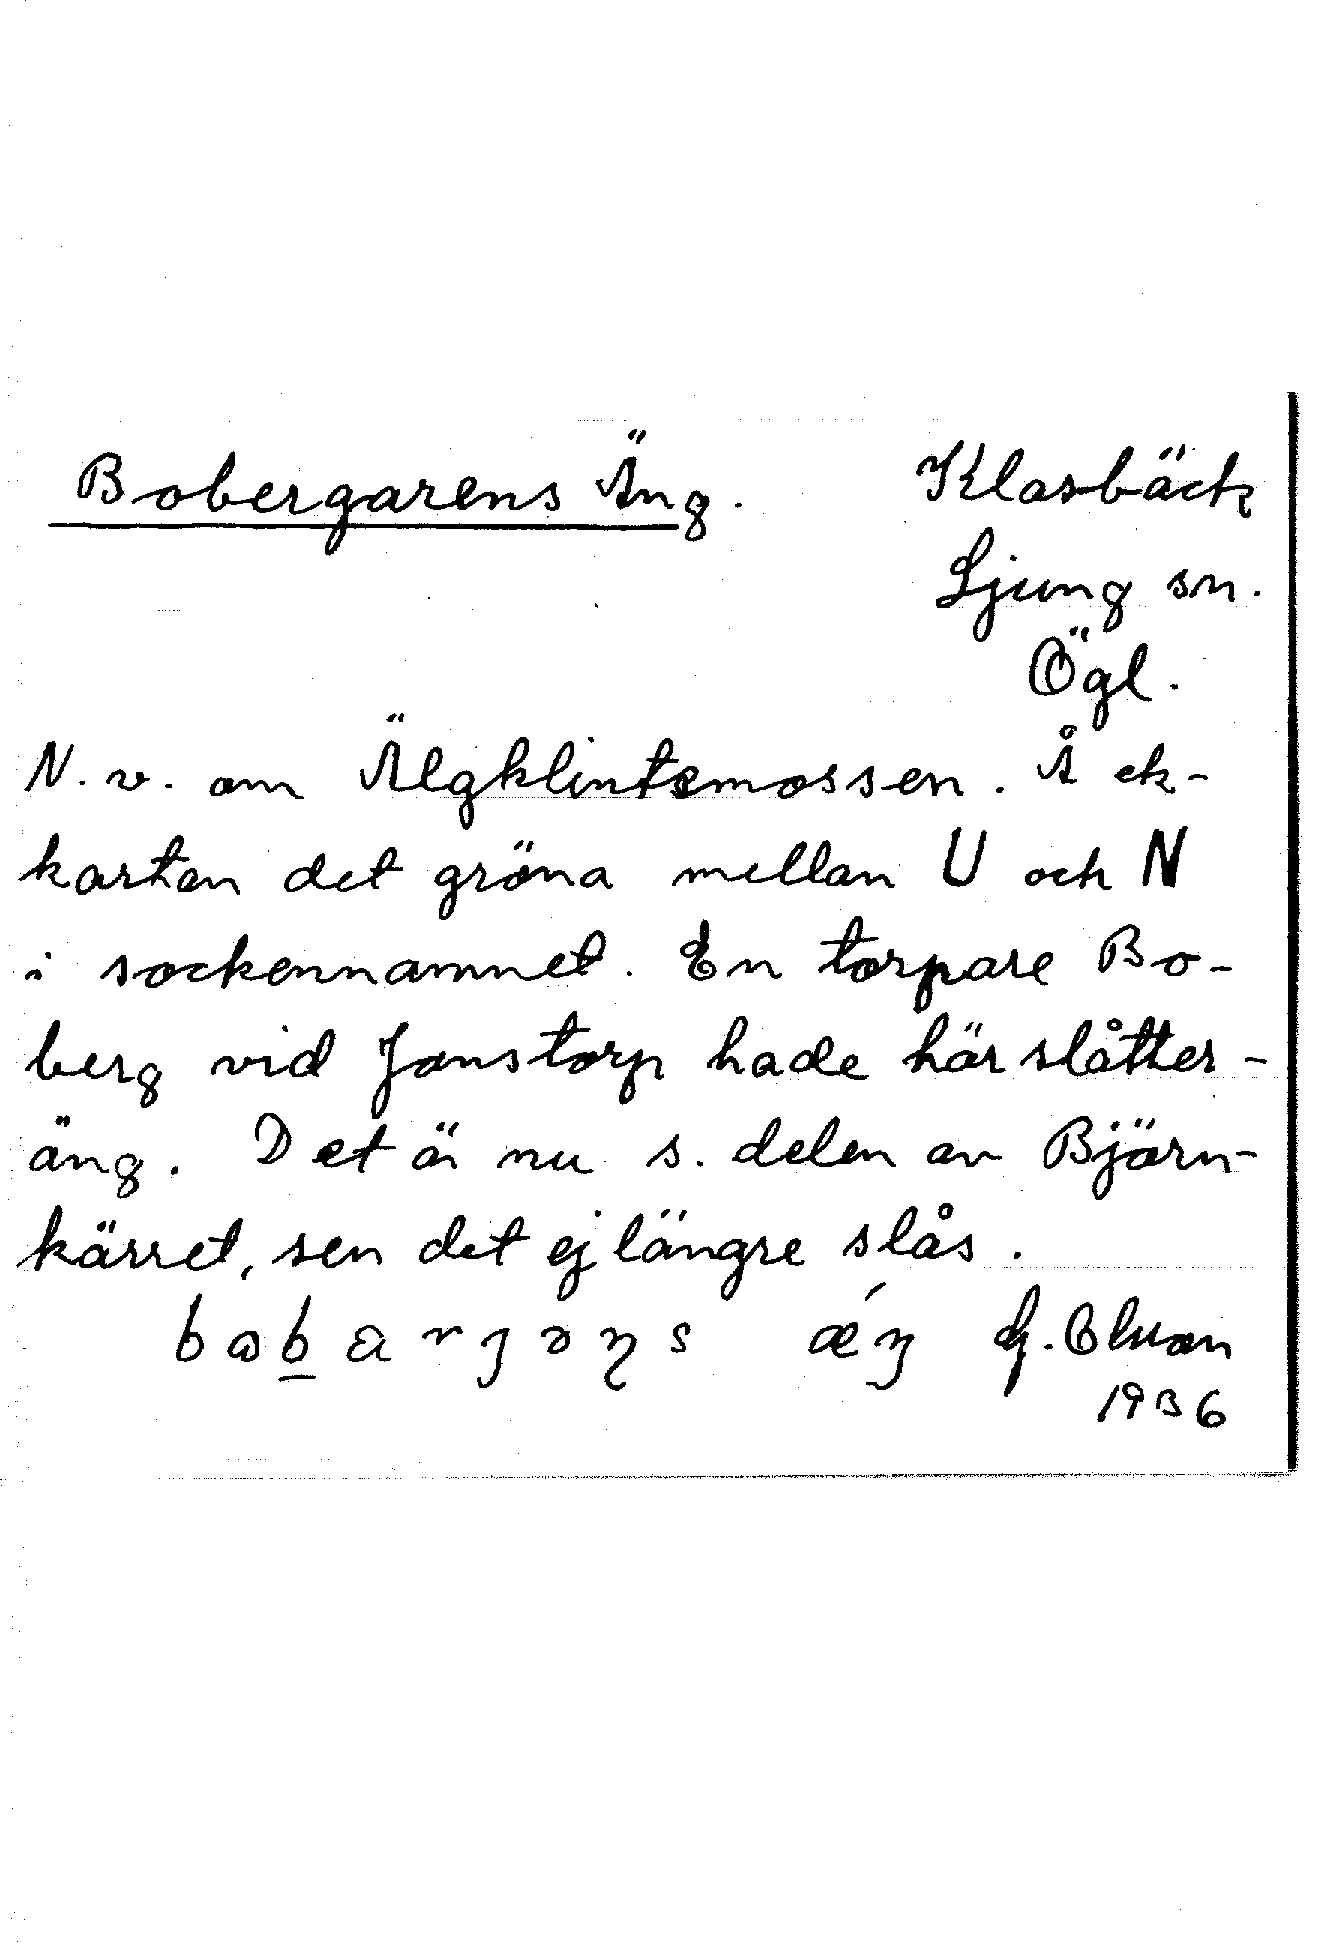 Bobergarens Äng. Klasbäck
Ljung sn.
Ögl.
N. v. om Älgklintemossen. Å ek-
kartan det gröna mellan U och N
i sockennamnet. En torpare Bo-
berg vid Jonstorp hade här slåtter-
äng. Det är nu s. delen av Björn-
kärret, sen det ej längre slås.
1936